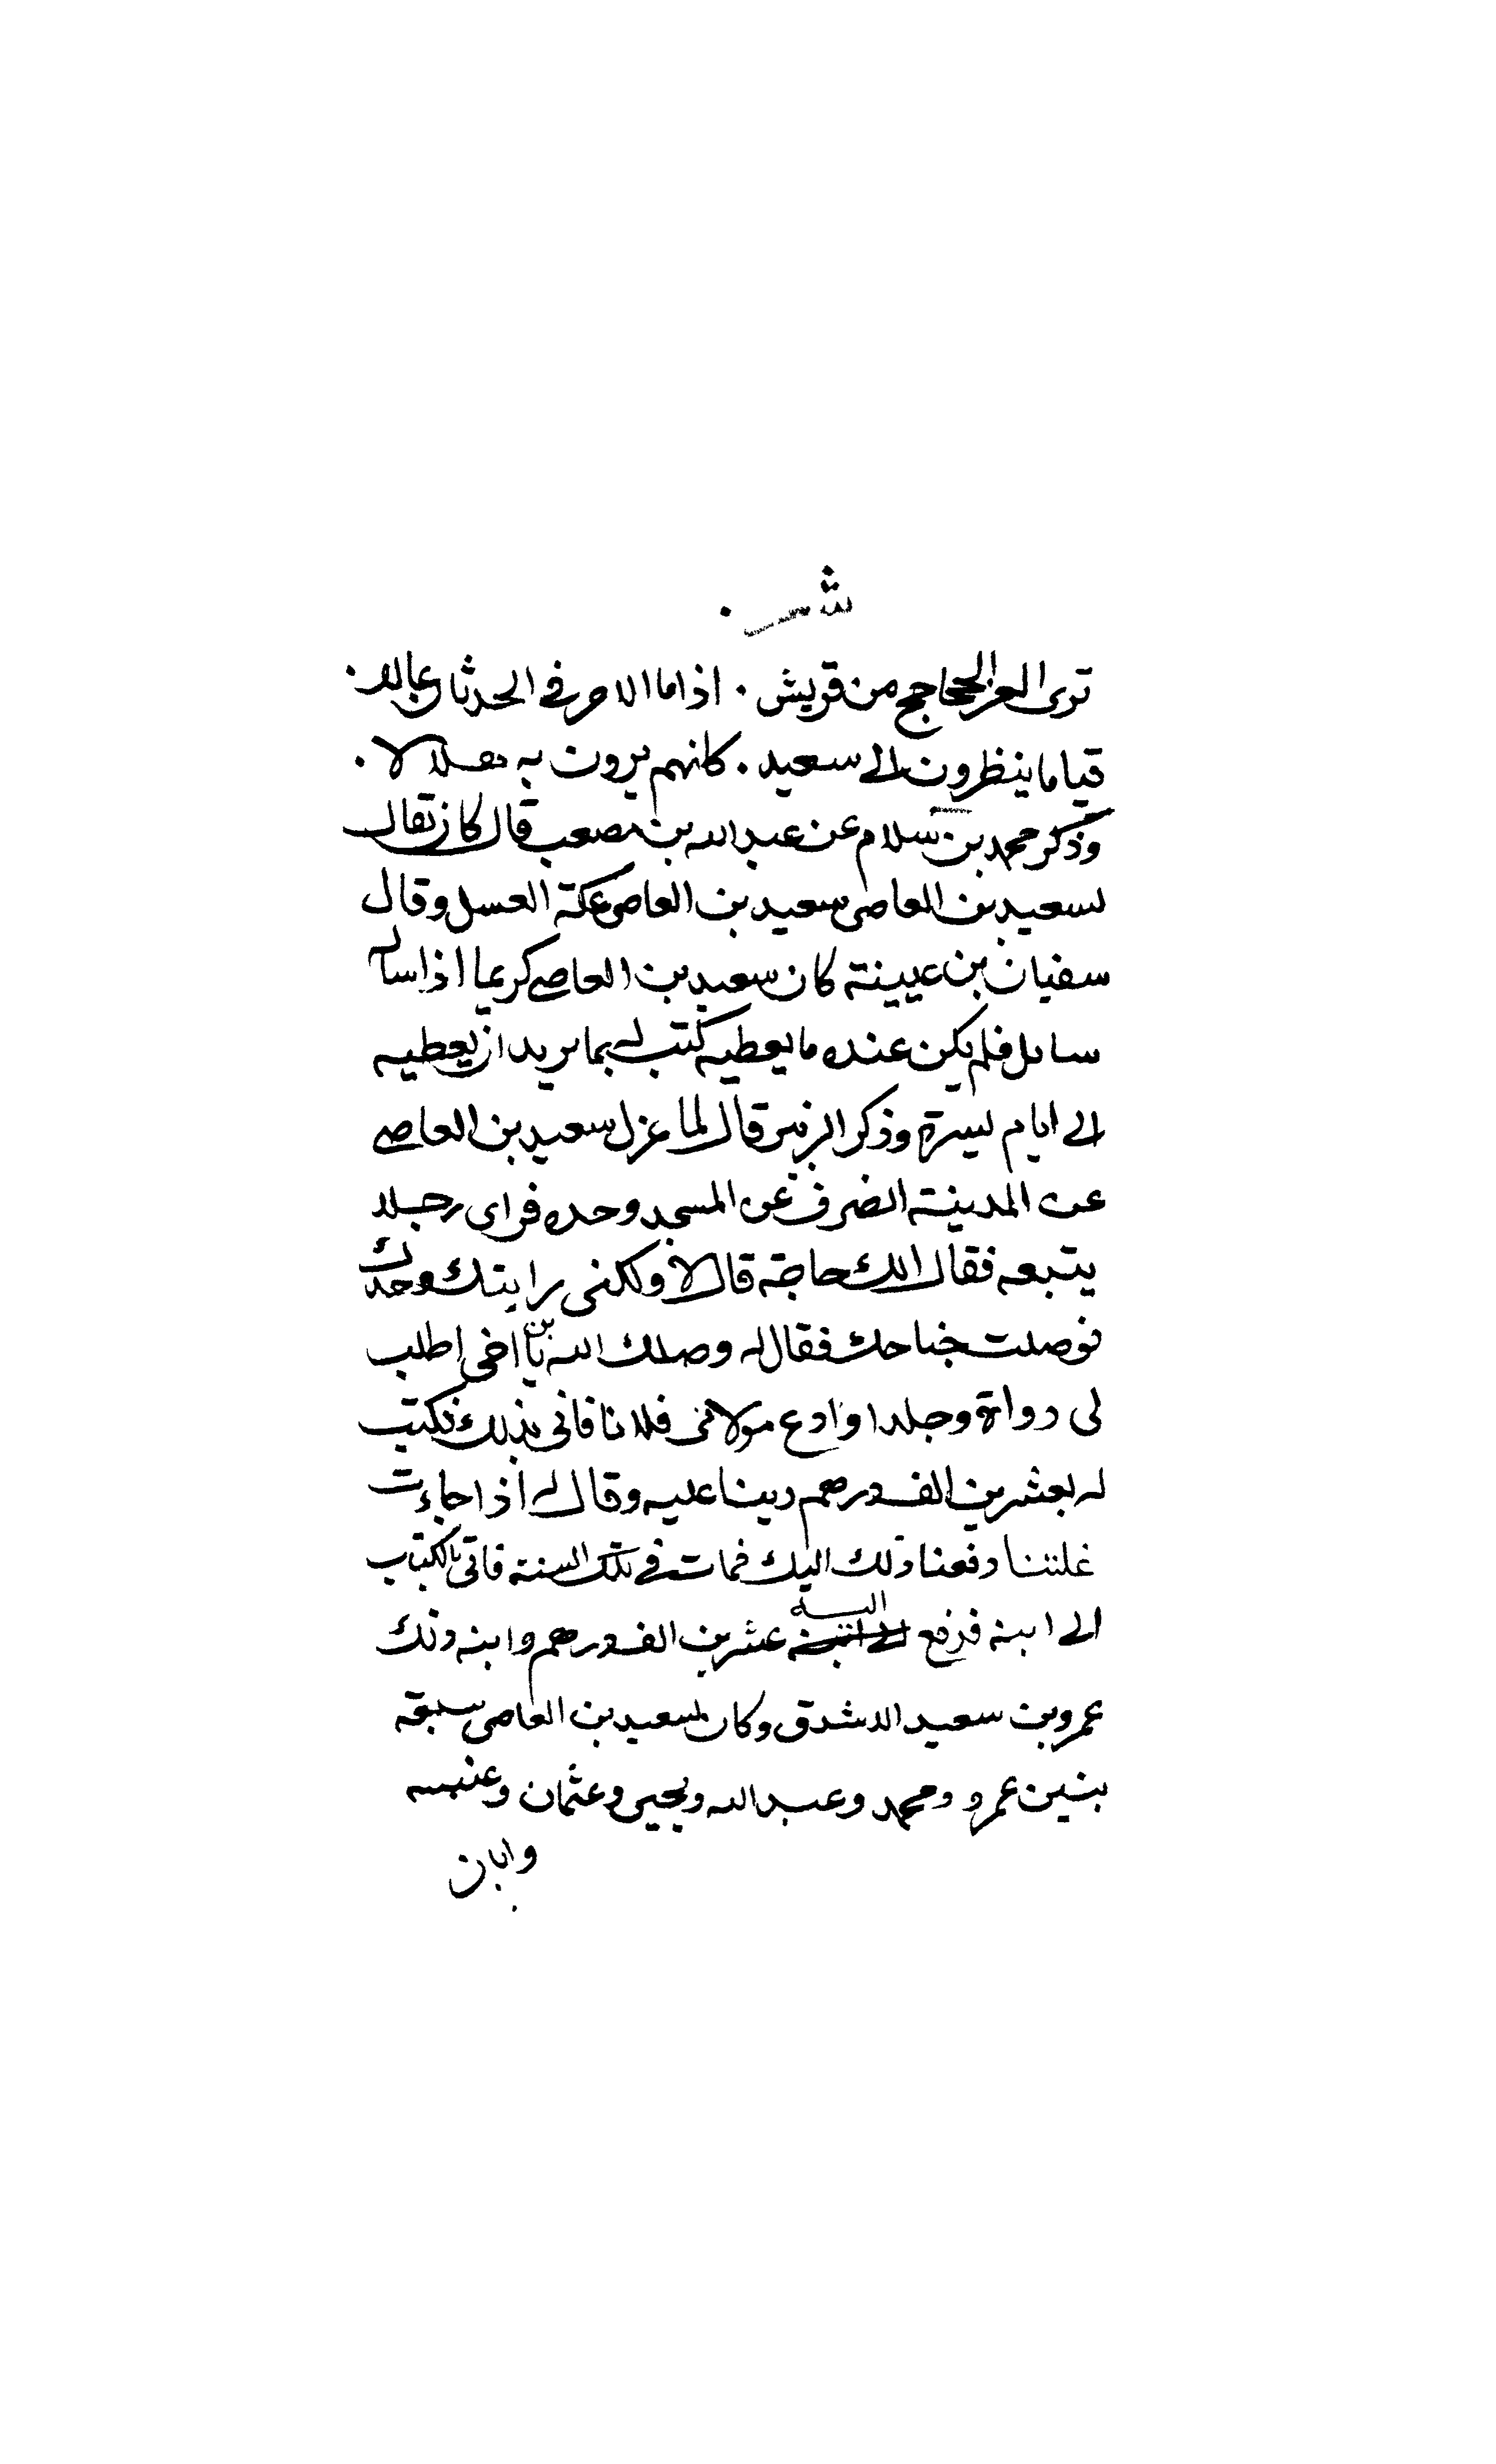 شعر
ترى الغر الجحاجح من قريش . اذا ما الامر في الحدثان عالا .
قياما ينظرون الى سعيد . كانهم يرون به هلالا .
وذكر محمد بن سلام عن عبد الله بن مصعب قال كان يقال
لسعيد بن العاصى سعيد بن العاصى عكة العسل وقال
سفيان بن عيينة كان سعيد بن العاصى كريما اذا ساله
سائل فلم يكن عنده ما يعطيه كتب له بما يريد ان يعطيه
الى ايام يسيرة وذكر الزبير قال لما عزل سعيد بن العاصى
عن المدينة انصرف عن المسجد وحده فراى رجلا
يتبعه فقال الك حاجة قال لا ولكنى رايتك وحدك
فوصلت جناحك فقال له وصلك الله يا بن اخى اطلب
لى دواة وجلدا وادع مولاى فلانا فاتى بذلك فكتب
له بعشرين الف درهم دينا عليه وقال له اذا جاءت
غلتنا دفعنا ذلك اليك فمات في تلك السنة فاتى بالكتاب
الى ابنه فدفع اليه عشرين الف درهم وابنه ذلك
عمرو بن سعيد الاشدق وكان لسعيد بن العاصى سبعة
بنين عمرو ومحمد وعبد الله ويحيى وعثمان وعنبسه
وابان